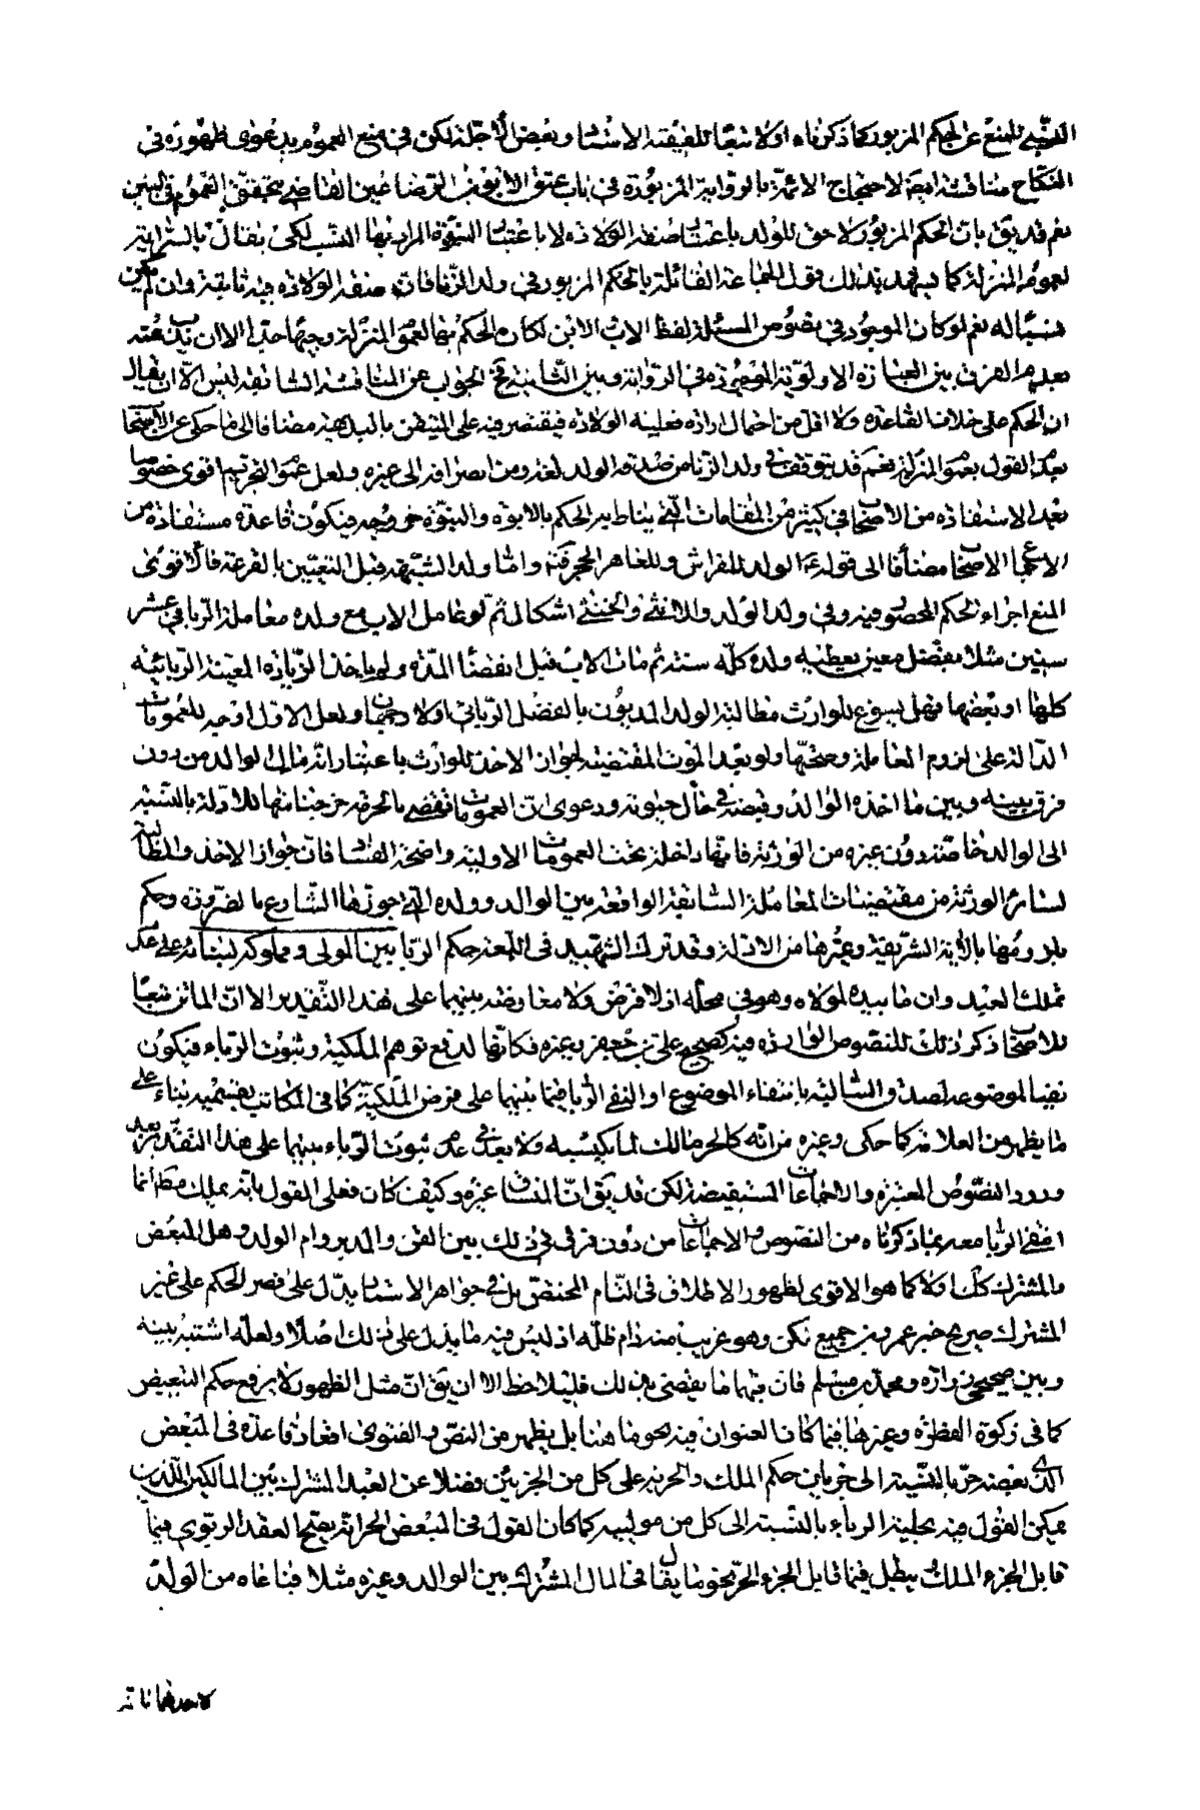 للمنع عن الحكم المزبور كما ذكرناه اولا تبعا للفقيه الاستاد وبعض الاجلة لكن في منع العموم بدعوى ظهوره في
النكاح مناقشة واضحة لاحتجاج الائمة بالرواية المزبورة في باب عتق الابوين الرضاعيين القاضي بتحقق العموم في البين
نعم قد يق بان الحكم المزبور لاحق للولد باعتبار صفة الولادة لا باعتبار البنوة المراد بها النسب لكي يقال بالسراية
لعموم المنزلة كما يشهد بذلك قول الجماعة القائلة بالحكم المزبور في ولد الزنا فان صفة الولادة فيه ثابتة وان لم يكن
له نعم لو كان الموجود في نصوص المسئلة لفظ الاب والابن لكان الحكم بها لعموم المنزلة وجيها حتى الا ان
بعدم الفرق بين العبارة الاولوية الموجودة في الرواية وبين الثانية فالجواب عن المناقشة السابقة ليس الا ان يقال
ان الحكم على خلاف القاعدة ولا اقل من احتمال ارادة فعلية الولادة فيقتصر فيه على المتيقن بالبديهة مضافا الى ما حكى عن الاصحاب
بعدم القول بعموم المنزلة نعم قد يتوقف في ولد الزنا من صدق الولد لغة ومن انصرافه الى غيره ولعل عموم التحريم اقوى خصوصا
بعد الاستفادة من الاصحاب في كثير من المقامات التي يناط بها الحكم بالابوة والبنوة خروجه فيكون قاعدة مستفادة من
الاصحاب مضافا الى قوله ع الولد للفراش وللعاهر الحجر فتم واما ولد الشبهة قبل التعيين بالقرعة فالاقوى
المنع اجراء لحكم المحصور فيه وفي ولد الولد والانثى والخنثى اشكال ثم لو عامل الاب مع ولده معاملة الربا في عشر
سنين مثلا بفضل معين يعطيه ولده كل سنة ثم مات الاب قبل انقضاء المدة ولم ياخذ الزيادة المعينة الربائية
كلها او بعضها فهل يسوغ للوارث مطالبة الولد المديون بالفضل الربائي اولا وجهان ولعل الاول اوجه للعمومات
الدالة على لزوم المعاملة وصحتها ولو بعد الموت المقتضية لجواز الاخذ للوارث باعتبار انه مال الوالد من دون
فرق بينه وبين ما اخذه الوالد وقبضه في حال حيوته ودعوى ان العمومات تقضى بالحرمة خرجنا منها للادلة بالنسبة
الى الوالد خاصة دون غيره من الورثة فانها داخلة تحت العمومات الاولية واضحة الفساد فان جواز الاخذ والمطالبة
لسائر الورثة من مقتضيات المعاملة السابقة الواقعة بين الوالد وولده التي جوزها الشارع بالضرورة وحكم
بلزومها بالآية الشريفة وغيرها من الادلة وقد ترك الشهيد في اللمعة حكم الربا بين المولى ومملوكه لبنائه على عدم
تملك العبد وان ما بيده لمولاه وهو في محله اذ لا قرض ولا معاوضة بينهما على هذا التقدير الا ان الماتن تبعا
للاصحاب ذكر ذلك للنصوص الواردة فيه كصحيح على بن جعفر وغيره فكانها لدفع توهم الملكية وثبوت الرباء فيكون
نفيا لموضوعه لصدق السالبة بانتفاء الموضوع او لنفى الربا فيما بينهما على فرض الملكية كما في المكاتب بقسميه بناء على
ما يظهر من العلامة كما حكى وغيره من انه كالحر مالك لما يكسبه ولا بعد في عدم ثبوت الرباء بينهما على هذا التقدير بعد
ورود النصوص المعتبرة والاجماعات المستفيضة لكن قد يق ان النساق غيره وكيف كان فعلى القول بانه يملك مطلقا
انتفى الربا معه بما ذكرناه من النصوص والاجماعات من دون فرق في ذلك بين القن والمدبر وام الولد وهل المبعض
والمشترك كك اولا كما هو الاقوى لظهور الاطلاق في التام المختص بل في جواهر الاستاد يدل على قصر الحكم على غير
المشترك صريح خبر عمرو بن جميع لكن وهو غريب منه دام ظله اذ ليس فيه ما يدل على ذلك اصلا ولعله اشتبه بينه
وبين صحيحى زرارة ومحمد بن مسلم فان فيهما ما يقضى بذلك فليلاحظ الا ان يق ان مثل الظهور لا يرفع حكم التبعيض
كما في زكوة الفطرة وغيرها فيما كان العنوان فيه نحو ما هنا بل يظهر من النص والفتوى اتحاد قاعدة في المبعض
الذي بعضه حر بالنسبة الى جريان حكم الملك والحرية على كل من الجزئين فضلا عن العبد المشترك بين المالكين اللذين
يمكن القول فيه بحلية الرباء بالنسبة الى كل من موليه كما كان القول في المبعض الحر انه يصح العقد الربوي فيما
قابل الجزء الملك ويبطل فيما قابل الجزء الحر نحو ما يقال في المال المشترك بين الوالد وغيره مثلا فباعاه من الولد
لاحدهما فانه